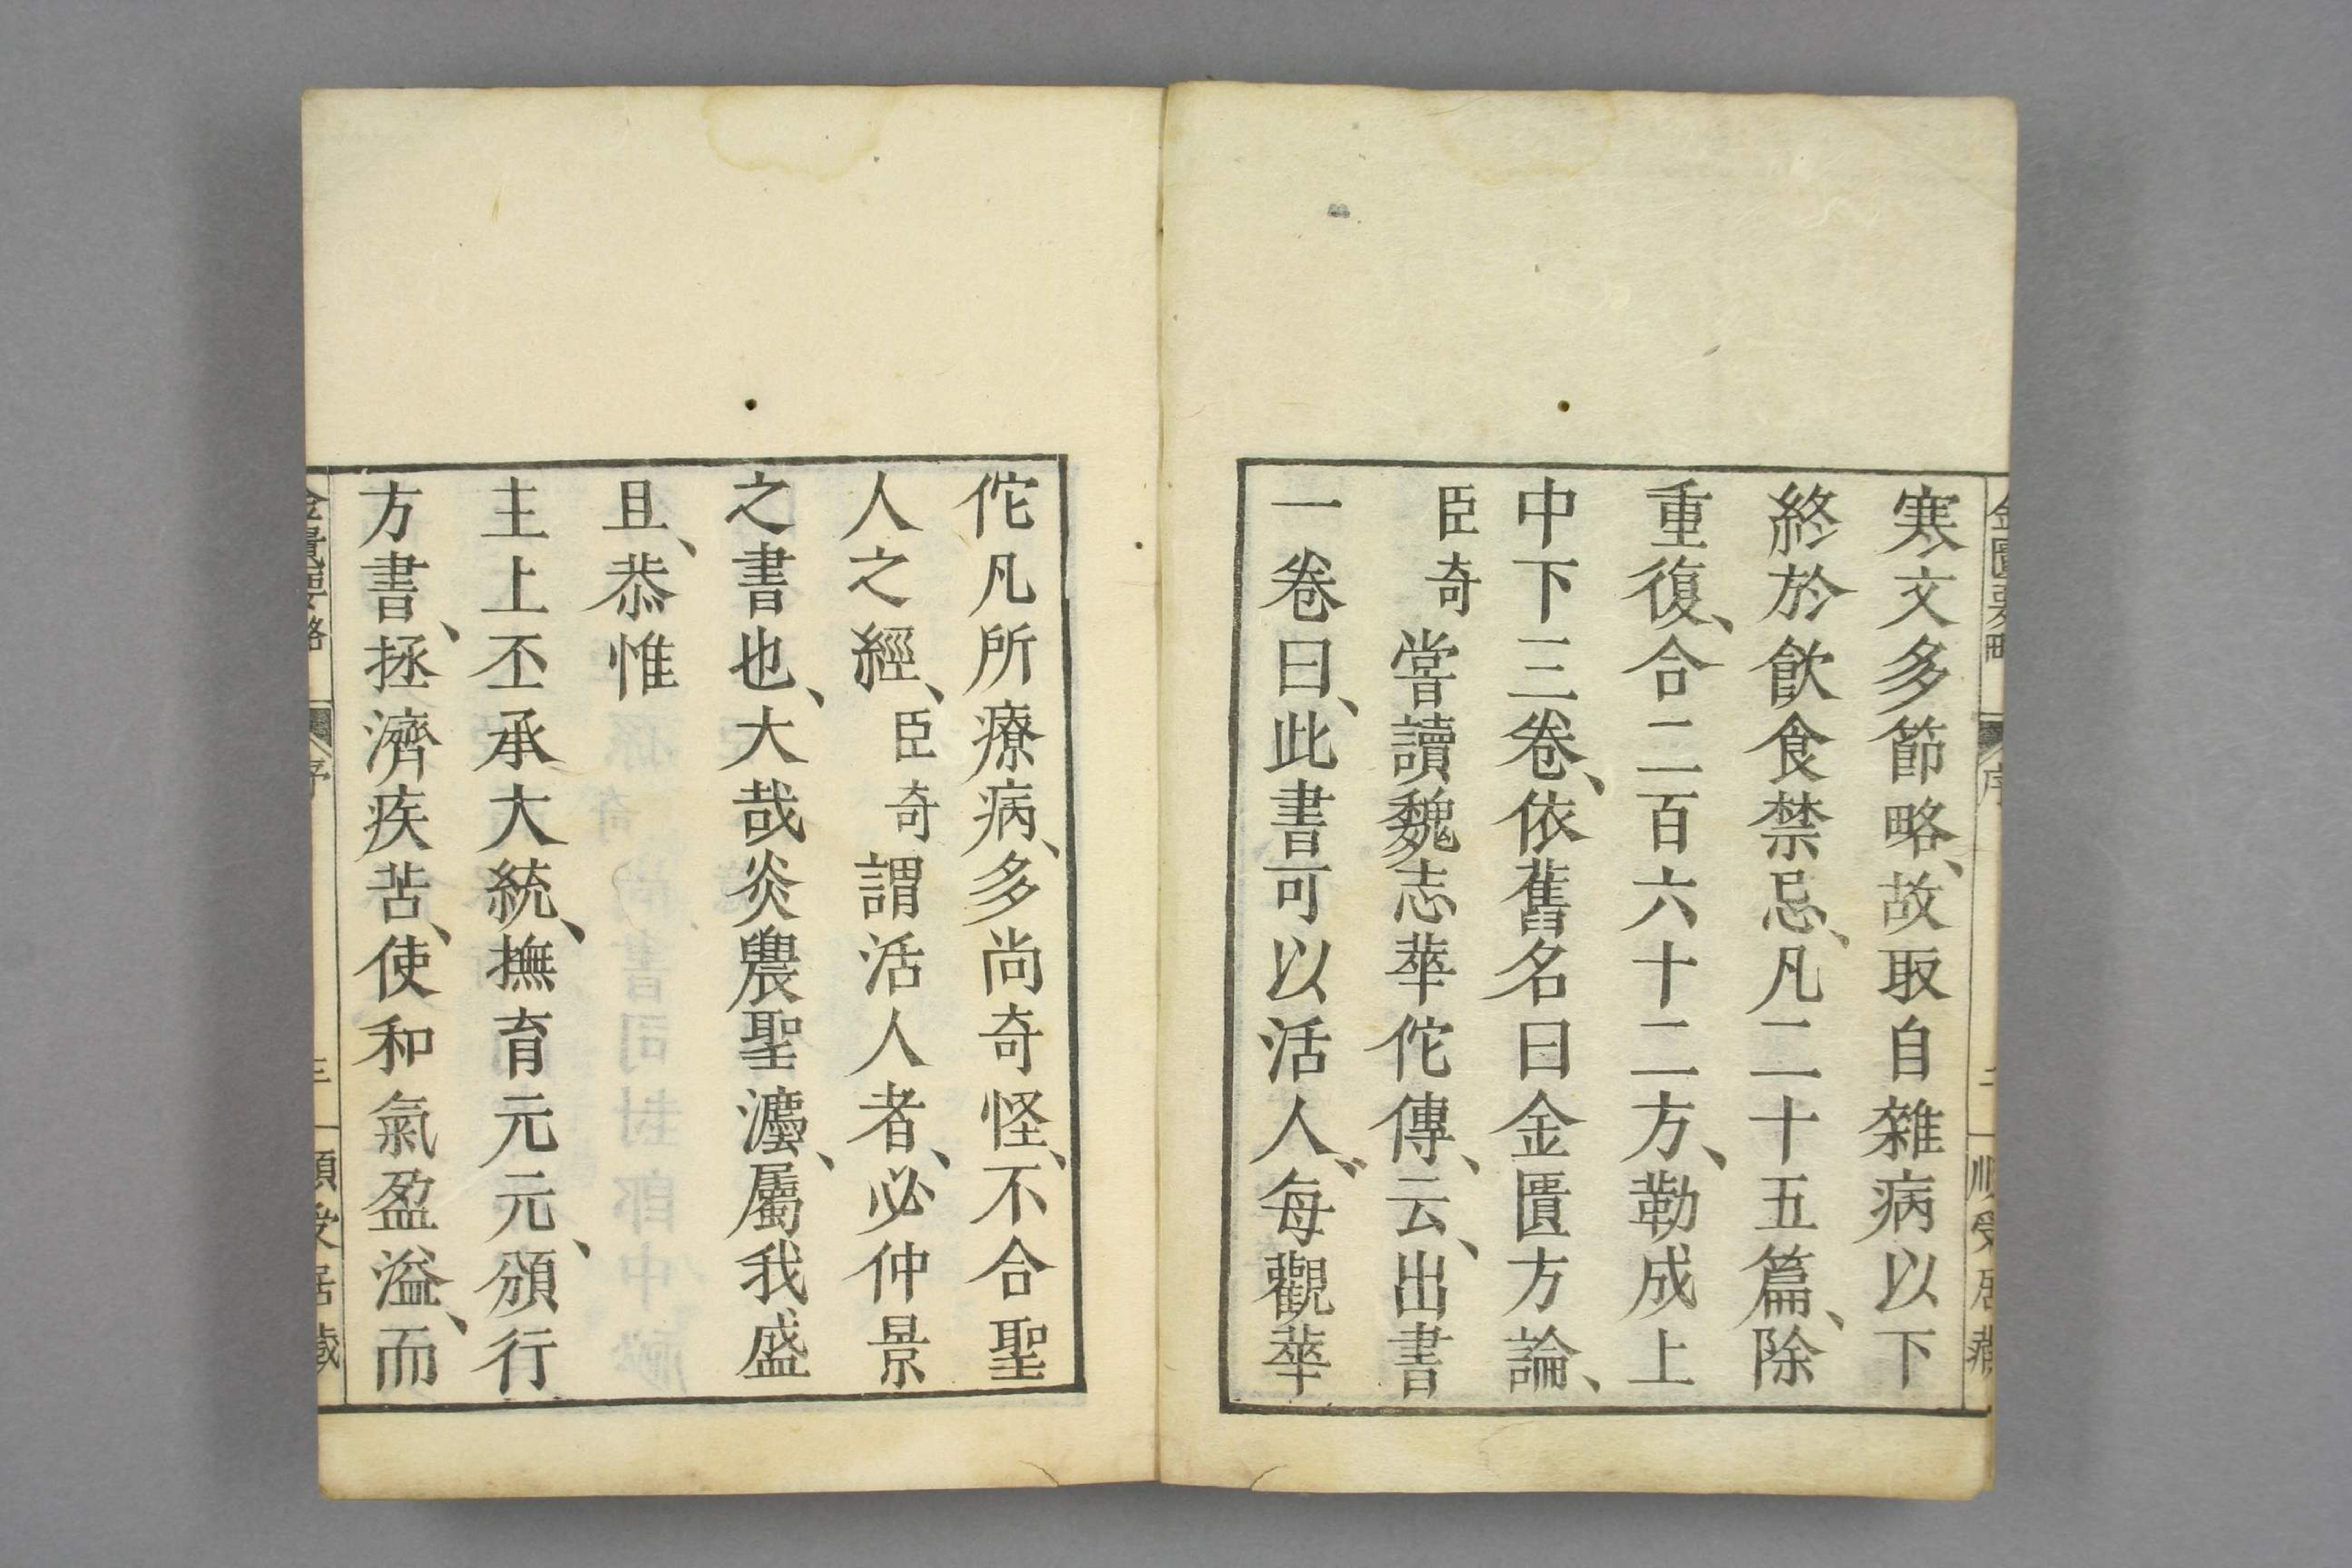 寒文多節略、故取自雜病以下
終於飲食禁忌、凡二十五篇、除
重復、合二百六十二方、勒成上
中下三卷、依舊名曰金匱方論、
臣奇嘗讀魏志華佗傳、云、出書
一卷曰、此書可以活人、每觀華
佗凡所療病、多尚奇怪、不合聖
人之經、臣奇謂活人者、必仲景
之書也、大哉炎農聖灋、屬我盛
且、恭惟
主上丕承大統、撫育元元、頒行
方書、拯濟疾苦、使和氣盈溢、而
金匱要略
序
三
順受居藏